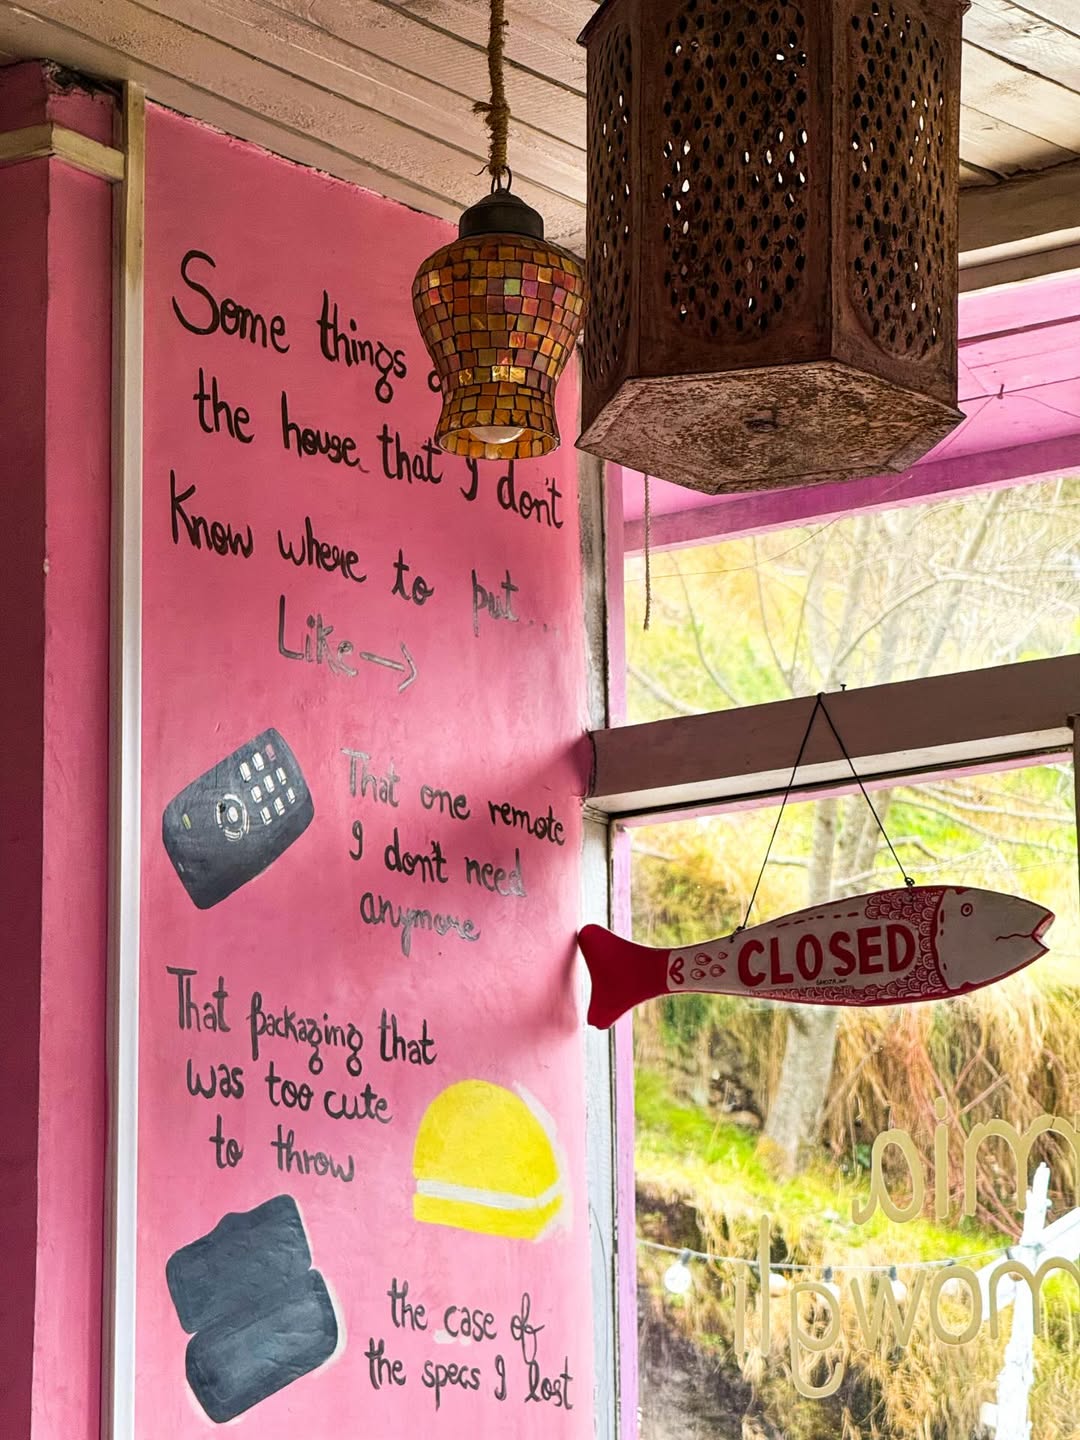 Some things
the house that I don't
Know where to put...
Like →
That one remote
I don't need
anymore
That packaging that
was too cute
to throw
the case of
the specs I lost
CLOSED
mia
mowgli